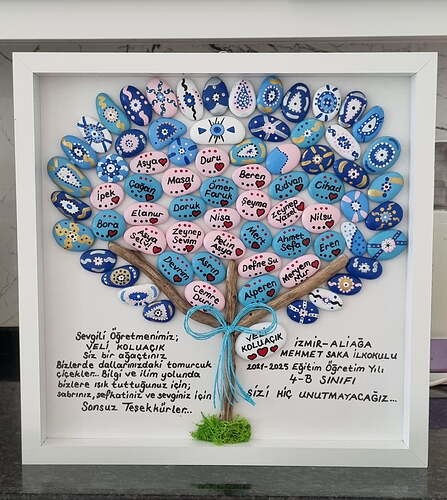 Asya
Duru
Beren
Masal
İpek
Çağan
Ömer Faruk
Rıdvan
Cihad
Doruk
Şeyma
Zeynep
Elanur
Nisa
Nilsu
Bora
Asya
Zeynep Sevim
Pelin Asya
Mert
Ahmet Sefa
Eren
Devrim
Asrın
Defne Su
Meryem Nur
Cemre Duru
Alperen
VELİ
KOLUAÇIK
Sevgili Öğretmenimiz;
VELİ KOLUAÇIK
Siz bir ağaçtınız
Bizlerde dallarınızdaki tomurcuk
çiçekler... Bilgi ve ilim yolunda
bizlere ışık tuttuğunuz için;
sabrınız, şefkatiniz ve sevginiz için
Sonsuz Teşekkürler...
İZMİR-ALİAĞA
MEHMET SAKA İLKOKULU
2021-2025 Eğitim Öğretim Yılı
4-B SINIFI
SİZİ HİÇ UNUTMAYACAĞIZ...